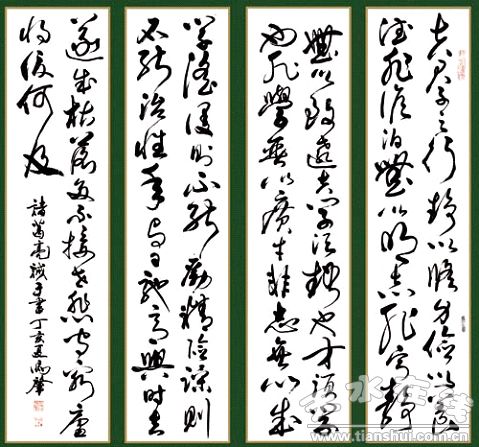 夫君子之行静以修身俭以养
德非澹泊無以明志非寧静
無以致遠夫学须静也才须学
也非學無以廣才非志無以成
学淫慢则不能励精险躁则
不能治性年与日驰意與时去
遂成枯落多不接世悲守穷廬
将復何及
諸葛亮誡子書丁亥夏
天水在线
www.tianshui.com.cn